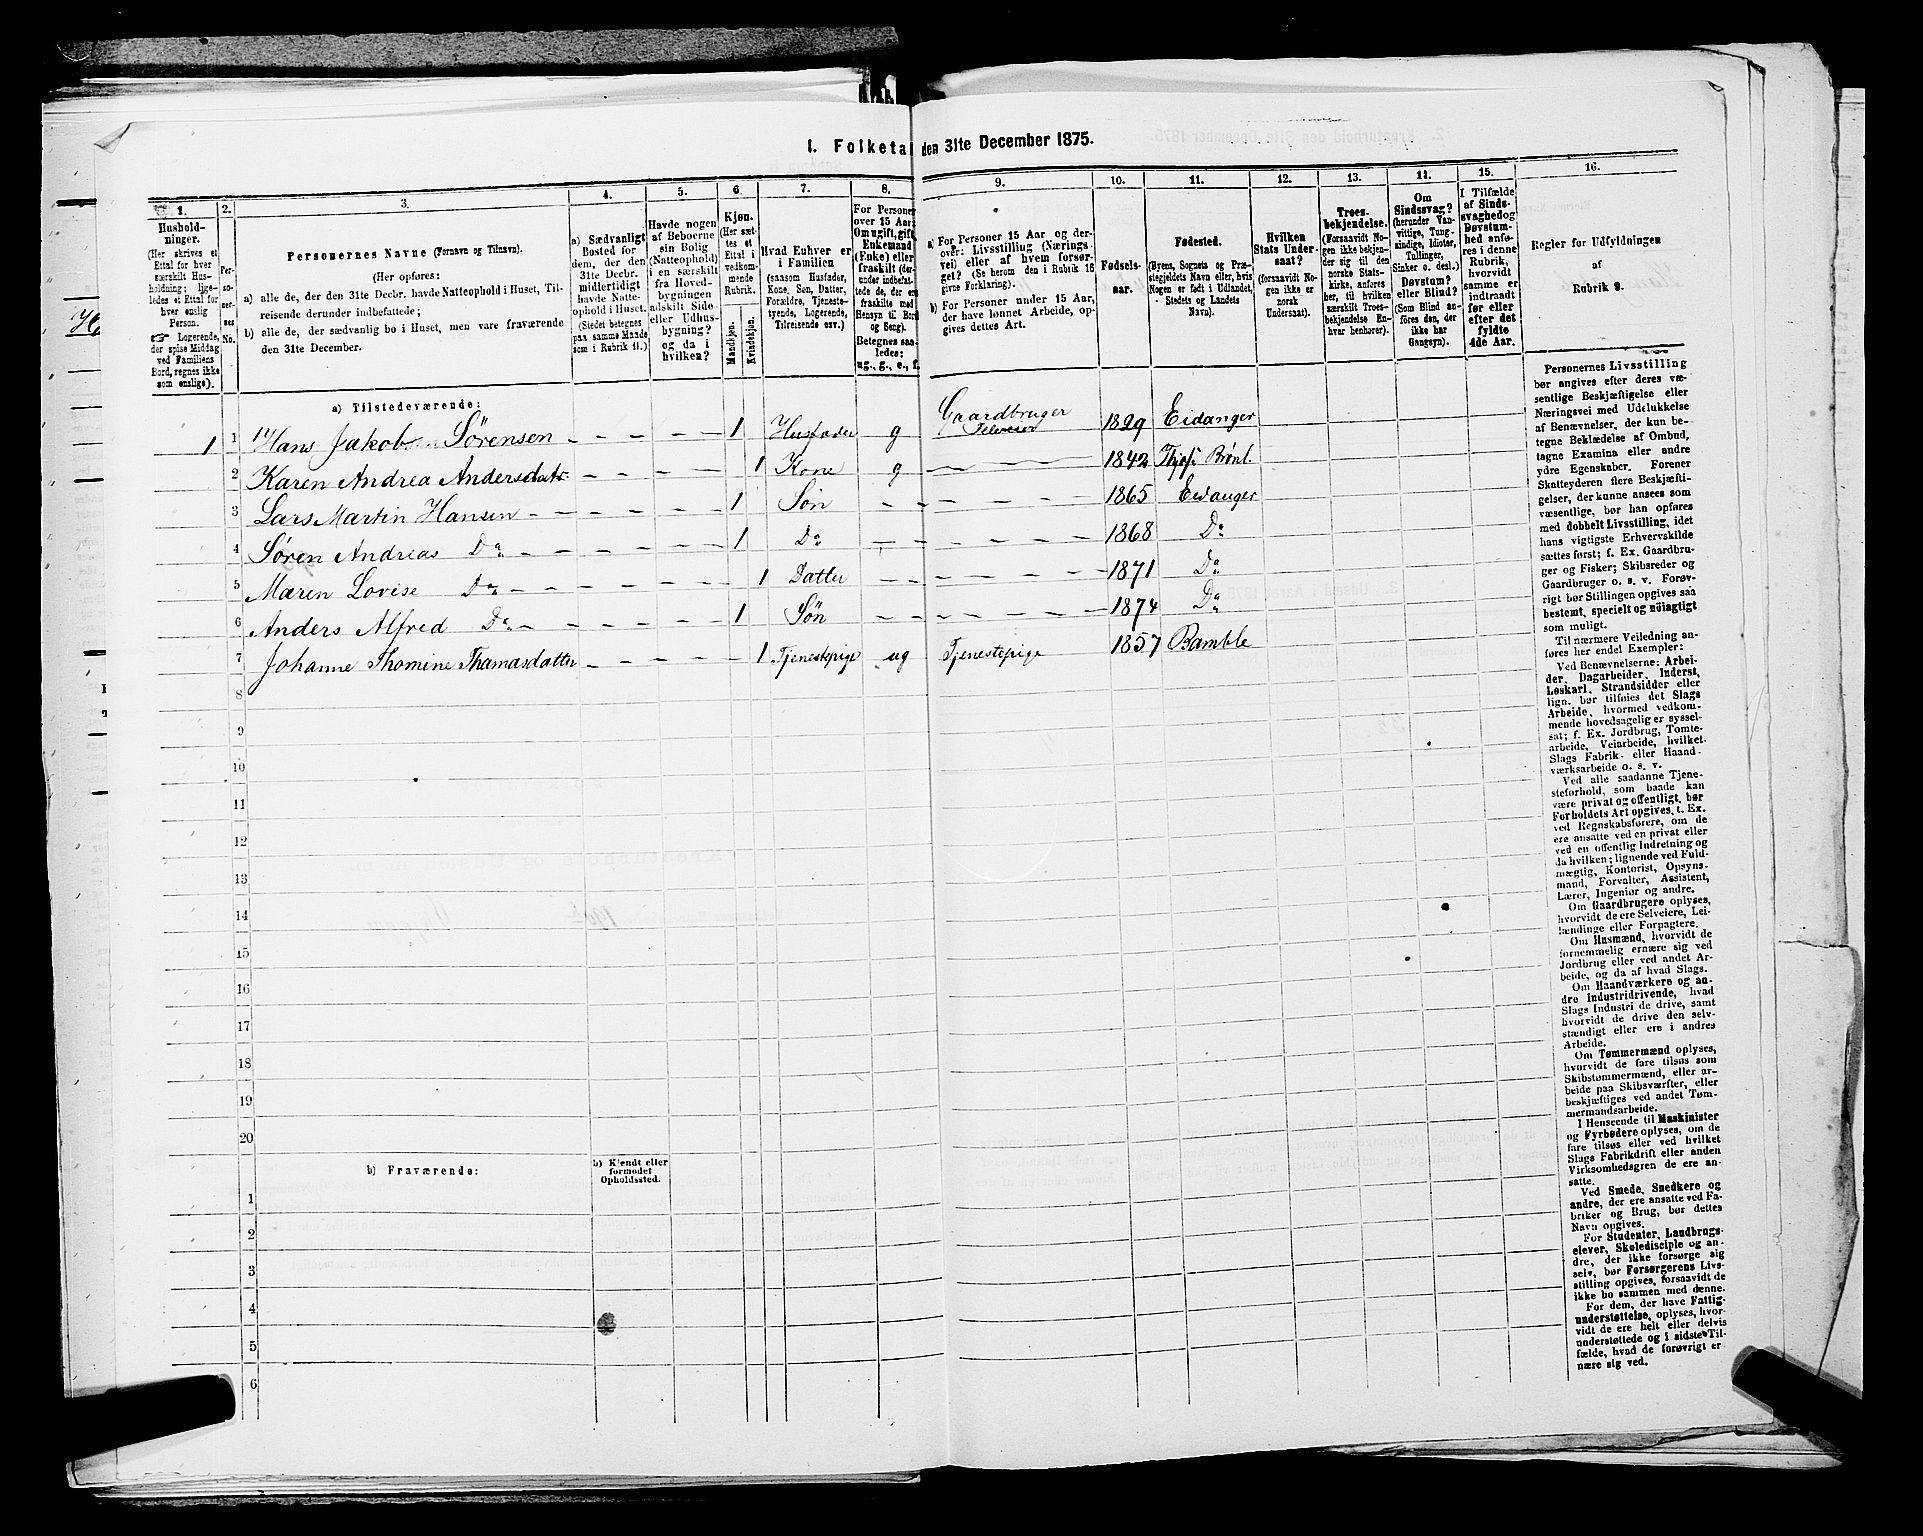 I. Folketal den 31te December 1875.
1.
2.
3.
4.
5.
6.
7.
8.
9.
10.
11.
12.
13.
14.
15.
16.
Hushold-
ninger.
(Her skrives et
Ettal for hver
særskilt Hus-
holdning; lige-
ledes et Ettal for
hver enslig
Person.
Logerende,
der spise Middag
ved Familiens
Bord, regnes ikke
som enslige).
Per-
so-
ner-
nes
No.
Personernes Navne (Fornavn og Tilnavn).
(Her opføres:
a) alle de, der den 31te Decbr. havde Natteophold i Huset, Til-
reisende derunder indbefattede;
b) alle de, der sædvanlig bo i Huset, men vare fraværende
den 31te December.
a) Sædvanligt
Bosted for
dem, der den
31te Decbr.
midlertidigt
havde Natte-
ophold i Huset.
(Stedet betegnes
paa samme Maade
som i Rubrik 11.)
Havde nogen
af Beboerne
sin Bolig
(Natteophold)
i en særskilt
fra Hoved-
bygningen
adskilt Side
eller Udhus-
bygning?
og da i
hvilken?
Kjøn.
(Her sæt-
tes et
Ettal i
vedkom-
mende
Rubrik.)
Mandkjøn.
Kvindekjøn.
Hvad Enhver er
i Familien
(saasom Husfader,
Kone, Søn, Datter,
Forældre, Tjeneste-
tyende, Logerende,
Tilreisende osv.)
For Personer
over 15 Aar:
Om ugift, gift,
Enkemand
(Enke) eller
fraskilt (der-
under indbefat-
tede de, der ere
fraskilte med
Hensyn til Bord
og Seng).
Betegnes saa-
ledes:
ug., g., e., f.
a) For Personer 15 Aar og der-
over: Livsstilling (Nærings-
vei) eller af hvem forsør-
get? (Se herom den i Rubrik 16
givne Forklaring).
b) For Personer under 15 Aar,
der have lønnet Arbeide, op-
gives dettes Art.
Fødsels-
aar.
Fødested.
(Byens, Sognets og Præ-
stegjeldets Navn eller, hvis
Nogen er født i Udlandet,
Stedets og Landets
Navn).
Hvilken
Stats Under-
saat?
(forsaavidt No-
gen ikke er
norsk
Undersaat).
Troes-
bekjendelse.
(Forsaavidt No-
gen ikke bekjen-
der sig til den
norske Stats-
kirke, anføres
her, til hvilken
særskilt Troes-
bekjendelse En-
hver henhører).
Om
Sindssvag?
(herunder Van-
vittige, Tung-
sindige, Idioter,
Tullinger,
Sinker o. desl.)
Døvstum?
eller Blind?
(Som Blind an-
føres den, der
ikke har
Gangsyn).
I Tilfælde
af Sinds-
svaghed og
Døvstum-
hed anfø-
res i denne
Rubrik,
hvorvidt
samme er
indtraadt
før eller
efter det
fyldte
4de Aar.
Regler for Udfyldningen
af
Rubrik 9.
a) Tilstedeværende:
1 1 Hans Jakob Sørensen 1 Husfader g Gaardbruger Selveier 1829 Eidanger
2 Karen Andrea Andersdatr. 1 Kone g 1842 Brønl.
3 Lars Martin Hansen 1 Søn 1865 Eidanger
4 Søren Andreas Do 1 Do 1868 Do
5 Maren Lovise Do 1 Datter 1871 Do
6 Anders Alfred Do 1 Søn 1874 Do
7 Johanne Thomine Thamasdatter 1 Tjenestepige ug Tjenestepige 1857 Bamble
8
9
10
11
12
13
14
15
16
17
18
19
20
b) Fraværende:
b) Kjendt eller
formodet
Opholdssted.
1
2
3
4
5
6
Personernes Livsstilling
bør angives efter deres væ-
sentlige Beskjæftigelse eller
Næringsvei med Udelukkelse
af Benævnelser, der kun be-
tegne Beklædelse af Ombud,
tagne Examina eller andre
ydre Egenskaber. Forener
Skatteyderen flere Beskjæfti-
gelser, der kunne ansees som
væsentlige, bør han opføres
med dobbelt Livsstilling, idet
hans vigtigste Erhvervskilde
sættes først; f. Ex. Gaardbru-
ger og Fisker; Skibsreder og
Gaardbruger o. s. v. Forøv-
rigt bør Stillingen opgives saa
bestemt, specielt og nøiagtigt
som muligt.
Til nærmere Veiledning an-
føres her endel Exempler:
Ved Benævnelserne: Arbei-
der, Dagarbeider, Inderst,
Løskarl, Strandsidder eller
lign. bør tilføies det Slags
Arbeide, hvormed vedkom-
mende hovedsagelig er syssel-
sat; f. Ex. Jordbrug, Tomte-
arbeide, Veiarbeide, hvilket-
Slags Fabrik- eller Haand-
værksarbeide o. s. v.
Ved alle saadanne Tjene-
steforhold, som baade kan
være privat og offentligt, bør
Forholdets Art opgives, t. Ex.
ved Regnskabsførere, om de
ere ansatte ved en privat eller
ved en offentlig Indretning og
da hvilken; lignende ved Fuld-
mægtig, Kontorist, Opsyns-
mand, Forvalter, Assistent,
Lærer, Ingeniør og andre.
Om Gaardbrugere oplyses,
hvorvidt de ere Selveiere, Lei-
lændinge eller Forpagtere.
Om Husmænd, hvorvidt de
fornemmelig ernære sig ved
Jordbrug eller ved andet Ar-
beide, og da af hvad Slags.
Om Haandværkere og an-
dre Industridrivende, hvad
Slags Industri de drive, samt
hvorvidt de drive den selv-
stændigt eller ere i andres
Arbeide.
Om Tømmermænd oplyses,
hvorvidt de fare tilsøs som
Skibstømmermænd, eller ar-
beide paa Skibsværfter, eller
beskjæftiges ved andet Tøm-
mermandsarbeide.
I Henseende til Maskinister
og Fyrbødere oplyses, om de
fare tilsøs eller ved hvilket
Slags Fabrikdrift eller anden
Virksomhedsgren de ere an-
satte.
Ved Smede, Snedkere og
andre, der ere ansatte ved Fa-
briker og Brug, bør dettes
Navn opgives.
For Studenter, Landbrugs-
elever, Skoledisciple og an-
dre, der ikke forsørge sig
selv, bør Forsørgerens Livs-
stilling opgives, forsaavidt de
ikke bo sammen med denne.
For dem, der have Fattig-
understøttelse, oplyses, hvor-
vidt de ere helt eller delvis
understøttede og i sidste Til-
fælde, hvad de forøvrigt er-
nære sig ved.